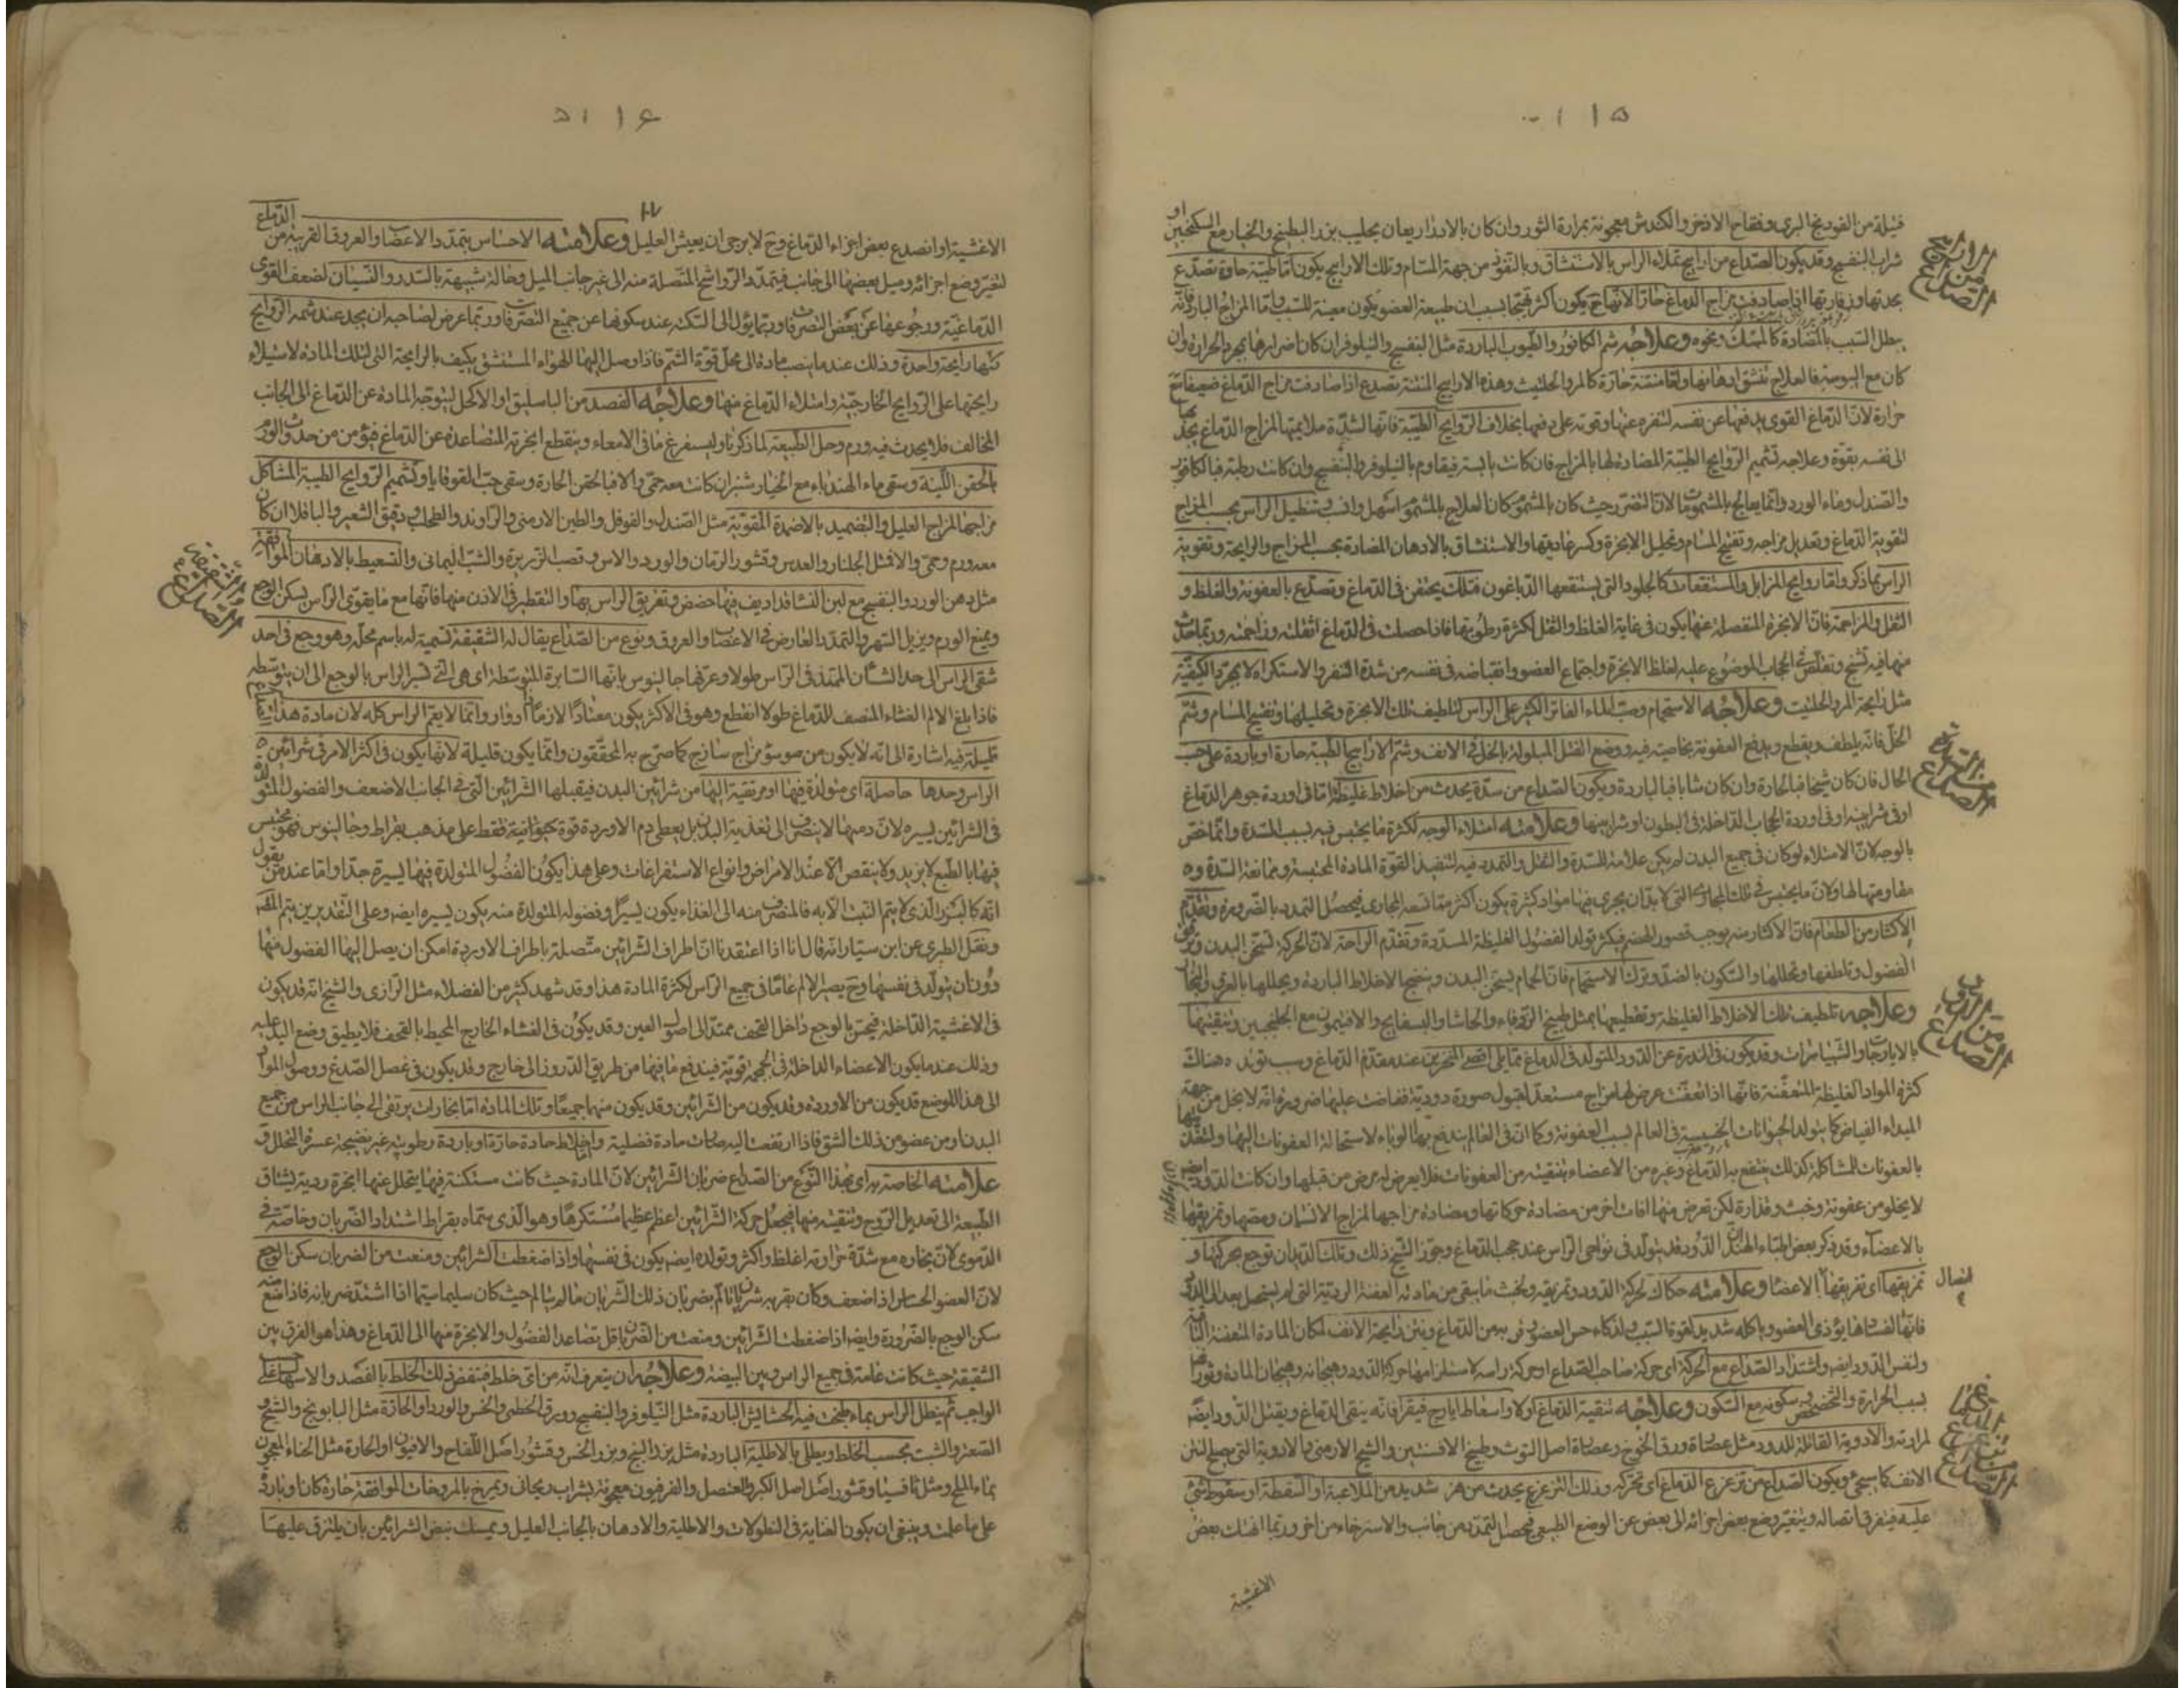 ١٥
فتيلة من الفودنج البرى وفقاح الاذخر والكندش معجونة بمرارة الثور وان كان بالادرار يعان بحليب بزر البطيخ والخيار مع السكنجبين او
شراب البنفسج وقد يكون الصداع من اراييح تملاء الراس بالاستنشاق وبالنفوذ من جهة المسام وتلك الاراييح يكون اما طيبة حارة تصدع
بحدتها اذا صادفت مزاج الدماغ حارا لانها ح يكون اكثر تهيجا بسبب ان طبيعة العضو يكون معينة للسبب واما المزاج البارد فانه
يبطل السبب بالمضادة كالمسك ونحوه وعلاجه شم الكافور والطيوب الباردة مثل البنفسج والنيلوفر ان كان اضرارها بمجرد الحرارة وان
كان مع اليبوسة فالعلاج تنشق ادهانها واما منتنة حارة كالمر والحلتيت وهذه الاراييح المنتنة تصدع اذا صادفت مزاج الدماغ ضعيفا مع
حرارة لان الدماغ القوى يدفعها عن نفسه لتنفره عنها وقوته على دفعها بخلاف الروايح الطيبة فانها لشدة ملايمتها لمزاج الدماغ يجذبها
الى نفسه بقوة وعلاجه تشميم الروايح الطيبة المضادة لها بالمزاج فان كانت يابسة فيقاوم بالنيلوفر والبنفسج وان كانت رطبة فبالكافور
والصندل وماء الورد وانما يعالج بالمشمومات لان التضرر حيث كان بالمشموم كان العلاج بالمشموم اسهل واقرب وتنطيل الراس بحسب المزاج
لتقوية الدماغ وتعديل مزاجه وتفتيح المسام وتحليل الابخرة وكسر عاديتها والاستنشاق بالادهان المضادة بحسب المزاج والرايحة وتقوية
الراس بما ذكر واما روايح المزابل والمستنقعات كالجلود التى يستنقعها الدباغون فتلك يحتقن فى الدماغ وتصدع بالعفونة والغلظ و
الثقل والمزاحمة فان الابخرة المنفصلة عنها يكون فى غاية الغلظ والثقل لكثرة رطوبتها فاذا حصلت فى الدماغ اثقلته وزاحمته وربما حدث
منها فيه تشنج وتقلص فى الحجاب الموضوع عليه لغلظ الابخرة واجتماع العضو وانقباضه فى نفسه من شدة التنفر والاستكراه لا بمجرد الكيفية
مثل رايحة المر والحلتيت وعلاجه الاستحمام وصب الماء الفاتر الكثير على الراس لتلطيف تلك الابخرة وتحليلها وتفتيح المسام وشم
الخل فانه يلطف ويقطع ويدفع العفونة بخاصية فيه ووضع الفتل المبلولة بالخل فى الانف وشم الاراييح الطيبة حارة او باردة على حسب
الحال فان كان شيخا فبالحارة وان كان شابا فبالباردة ويكون الصداع من سدة يحدث من اخلاط غليظة اما فى اوردة جوهر الدماغ
او فى شرايينه او فى اوردة الحجاب الداخلة فى البطون او شرايينها وعلامته امتلاء الوجه لكثرة ما يحتبس فيه بسبب السدة وانما خص
بالوجه لان الامتلاء لو كان فى جميع البدن لم يكن علامة للسدة والثقل والتمدد فيه لتنفيذ القوة المادة المحتبسة وممانعة السدة و
مقاومتها لها ولان ما يحتبس فى تلك المجارى التى لا بد ان يجرى فيها مواد كثيرة يكون اكثر مما تسعه المجارى فيحصل التمدد بالضرورة وتقدم
الاكثار من الطعام فان الاكثار منه يوجب قصور الهضم فيكثر تولد الفضول الغليظة المسددة وتقدم الراحة لان الحركة تسخن البدن ويرقق
الفضول وتلطفها وتحللها والسكون بالضد وترك الاستحمام فان الحمام يسخن البدن وينضج الاخلاط الباردة ويحللها بالعرق والبخار
وعلاجه تلطيف تلك الاخلاط الغليظة وتقطيعها بمثل طبيخ الزوفاء والحاشا والبسفايج والافتيمون مع الجلنجبين وتنقيتها
بالايارجات والشبيارات وقد يكون فى الندرة عن الدود المتولد فى الدماغ مما يلى اقصى المنخرين عند مقدم الدماغ وسبب تولده هناك
كثرة المواد الغليظة المتعفنة فانها اذا تعفنت عرض لها مزاج مستعد لقبول صورة دودية ففاضت عليها ضرورة فانه لا بخل من جهة
المبداء الفياض كما يتولد الحيوانات الخسيسة فى العالم بسبب العفونة وكما ان فى العالم يندفع بها الوباء لاستحالة العفونات اليها ولتغذيها
بالعفونات المشاكلة كذلك ينتفع به الدماغ وغيره من الاعضاء بتنقيته من العفونات فلا يعرض له مرض من قبلها وان كانت الدود ايضا
لا يخلو من عفونة وخبث وقذارة لكن تعرض منها افات اخر من مضادة حركاتها ومضادة مزاجها لمزاج الانسان ومصها وتمزيقها
بالاعضاء وقد ذكر بعض اطباء الهند ان الدود قد يتولد فى نواحى الراس عند حجب الدماغ وجوز الشيخ ذلك وتلك الديدان توجع بحركتها و
تمزيقها اى تفريقها اتصال الاعضا وعلامته حكاك لحركة الدود وتمزيقه ولخبث ما بقى من مادته العفنة الردية التى لم ينتقل بعد الى الدود
فانها لفسادها يؤذى العضو وياكله شديد لقوة السبب ولذكاء حس العضو وقربه من الدماغ ونتن رايحة الانف لمكان المادة المتعفنة الباقية
ولنفس الدود ايضا واشتداد الصداع مع الحركة اى حركة صاحب الصداع او حركة راسه لاستلزامها حركة الدود وهيجانه وهيجان المادة وثورانها
بسبب الحرارة والتخضخض وسكونه مع السكون وعلاجه تنقية الدماغ اولا واسعاط ايارج فيقرا فانه ينقى الدماغ ويقتل الدود ايضا
لمرارته والادوية القاتلة للدود مثل عصارة ورق الخوخ وعصارة اصل التوث وطبيخ الافسنتين والشيح الارمنى بالادوية التى يصلح لنتن
الانف كما سيجئ ويكون الصداع من تزعزع الدماغ اى تحركه وذلك التزعزع يحدث من هز شديد من الملاعبة او السقطة او سقوط شئ
عليه فيتفرق اتصاله ويتغير وضع بعض اجزائه الى بعض عن الوضع الطبيعى فيحصل التمدد من جانب والاسترخاء من اخر وربما انهتك بعض
الاغشية
الصداع من الاراييح
الصداع من السدة
الصداع من الدود
الصداع من تزعزع الدماغ
١٦
الاغشية او انصدع بعض اجزاء الدماغ وح لا يرجى ان يعيش العليل وعلامته الاحساس بتمدد الاعصاب والعروق القريبة من الدماغ
لتغير وضع اجزائه وميل بعضها الى جانب فيتمدد الرواشح المتصلة منه الى غير جانب الميل وحالة شبيهة بالسدر والنسيان لضعف القوى
الدماغية ورجوعها عن بعض التصرفات وربما يؤل الى السكتة عند سكونها عن جميع التصرفات وربما عرض لصاحبه ان يجد عند شمه الروايح
كلها رايحة واحدة وذلك عند ما ينصب مادة الى محل قوة الشم فاذا وصل اليها الهواء المستنشق يكيف بالرايحة التى لتلك المادة لاستيلاء
رايحتها على الروايح الخارجية وامتلاء الدماغ منها وعلاجه الفصد من الباسليق او الاكحل ليتوجه المادة عن الدماغ الى الجانب
المخالف فلا يحدث فيه ورم وحل الطبيعة لما ذكرنا وليستفرغ ما فى الامعاء وينقطع الابخرة المتصاعدة عن الدماغ فيؤمن من حدوث الورم
بالحقن اللينة وسقى ماء الهندباء مع الخيارشنبر ان كانت معه حمى والا فبالحقن الحارة وسقى حب القوقايا وتشميم الروايح الطيبة المشاكل
مزاجها لمزاج العليل والتضميد بالاضمدة المقوية مثل الصندل والفوفل والطين الارمنى والراوند والطحلب ودقيق الشعير والباقلا ان كان
معه ورم وحمى والا فمثل الجلنار والعدس وقشور الرمان والورد والاس وقصب الذريرة والشب اليمانى والتسعيط بالادهان الموافقة
مثل دهن الورد والبنفسج مع لبن النساء قد اديف فيها حضض وتغريق الراس بها والتقطير فى الاذن منها فانها مع ما يقوى الراس يسكن الوجع
ويمنع الورم ويزيل السهر والتمدد العارض فى الاعصاب والعروق ونوع من الصداع يقال له الشقيقة تسمية له باسم محله وهو وجع فى احد
شقى الراس الى حد الشان الممتد فى الراس طولا وعرفها جالينوس بانها السايرة المتوسطة اى هى التى تسير الراس بالوجع الى ان يتوسطه
فاذا بلغ الالم الغشاء المنصف للدماغ طولا انقطع وهو فى الاكثر يكون معتادا لازما او ادوار وانما لا يعم الراس كله لان مادة هذا
قليلة فيه اشارة الى انه لا يكون من سوء مزاج ساذج كما صرح به المحققون وانما يكون قليلة لانها يكون فى اكثر الامر فى شرائين
الراس وحدها حاصلة اى متولدة فيها او مرتقية اليها من شرائين البدن فيقبلها الشرائين التى فى الجانب الاضعف والفضول المتولدة
فى الشرائين يسيره لان دمها لا ينصرف الى تغذية البدن بل يعطى دم الاوردة قوة حيوانية فقط على مذهب بقراط وجالينوس فهو محتبس
فيها بالطبع لا يزيد ولا ينقص الا عند الامراض وانواع الاستفراغات وعلى هذا يكون الفضول المتولدة فيها يسيرة جدا واما عند من يقول
انه كالبزر الذى لا يتم النبت الا به فالمنصرف منه الى الغذاء يكون يسيرا وفضوله المتولدة منه يكون يسيره ايضا وعلى التقديرين يتم المط
ونقل الطبرى عن ابن سيار انه قال انا اذا اعتقدنا ان اطراف الشرائين متصلة باطراف الاوردة امكن ان يصل اليها الفضول منها
دون ان يتولد فى نفسها وح يصير الالم عاما فى جميع الراس لكثرة المادة هذا وقد شهد كثير من الفضلاء مثل الرازى والشيخ انه قد يكون
فى الاغشية الداخلة فيحس بالوجع داخل القحف ممتدا الى اصول العين وقد يكون فى الغشاء الخارج المحيط بالقحف فلا يطيق وضع اليد عليه
وذلك عند ما يكون الاعضاء الداخلة فى الجمجمة قوية فيندفع ما فيها من طريق الدروز الى خارج وقد يكون فى عضل الصدغ ووصول المواد
الى هذا الموضع قد يكون من الاوردة وقد يكون من الشرائين وقد يكون منهما جميعا وتلك المادة اما بخارات يرتقى الى جانب الراس من جميع
البدن او من عضو من ذلك الشق فاذا ارتفعت اليه صارت مادة فضلية واما اخلاط حادة حارة او باردة رطوبية غير نضيجة عسرة التحلل و
علامته الخاصة به اى بهذا النوع من الصداع ضربان الشرائين لان المادة حيث كانت مستكنة فيها يتحلل عنها ابخرة ردية ليشتاق
الطبيعة الى تعديل الروح وتنقيته منها فيجعل حركة الشرائين اعظم عظما مستكرها وهو الذى سماه بقراط اشتداد الضربان وخاصة فى
الدموى لان بخاره مع شدة حرارته اغلظ واكثر وتولده ايضا يكون فى نفسها واذا ضغطت الشرائين ومنعت من الضربان سكن الوجع
لان العضو الحساس اذا ضعف وكان بقربه شريان تالم بضربان ذلك الشريان ما لم يتالم حيث كان سليما سيما اذا اشتد ضربانه فاذا منع منه
سكن الوجع بالضرورة وايضا اذا ضغطت الشرائين ومنعت من الضربان قل تصاعد الفضول والابخرة منها الى الدماغ وهذا هو الفرق بين
الشقيقة حيث كانت عامة فى جميع الراس وبين البيضة وعلاجه ان يتعرف انه من اى خلط فينفض ذلك الخلط بالفصد والاسهال على حسب
الواجب ثم ينطل الراس بماء طبخت فيه الحشايش الباردة مثل النيلوفر والبنفسج وورق الخطمى والخس والورد او الحارة مثل البابونج والشيح و
الصعتر والشبت بحسب الخلط ويطلى بالاطلية الباردة مثل بزر البنج وبزر الخس وقشور اصل اللفاح والافيون او الحارة مثل الحناء المعجون
بماء الملح ومثل ثافسيا وقشور اصل الكبر والعنصل والفرفيون معجونة بشراب ريحانى ويمرخ بالمروخات الموافقة حارة كانت او باردة
على ما علمت وينبغى ان يكون العناية فى النطولات والاطلية والادهان بالجانب العليل ويمسك نبض الشرائين بان يلتزق عليها
الصداع والشقيقة